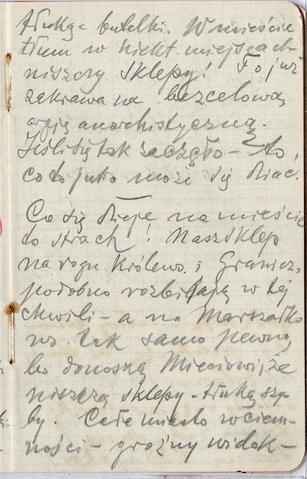 tłukąc butelki. W mieście
tłum w niekt. miejscach
niszczy sklepy! To już
zakrawa na bezcelową
akcję anarchistyczną.
Jeśli się tak zaczęło - to,
co to jutro może się dziać.
Co się dzieje na mieście
to strach! Nasz sklep
na rogu Królews. i Granicz.
podobno rozbijają w tej
chwili - a na Marszałko
ws. tak samo pewno,
bo donoszą Mieciowi, że
niszczą sklepy - tłuką szy
by. Całe miasto w ciem-
ności - groźny widok -